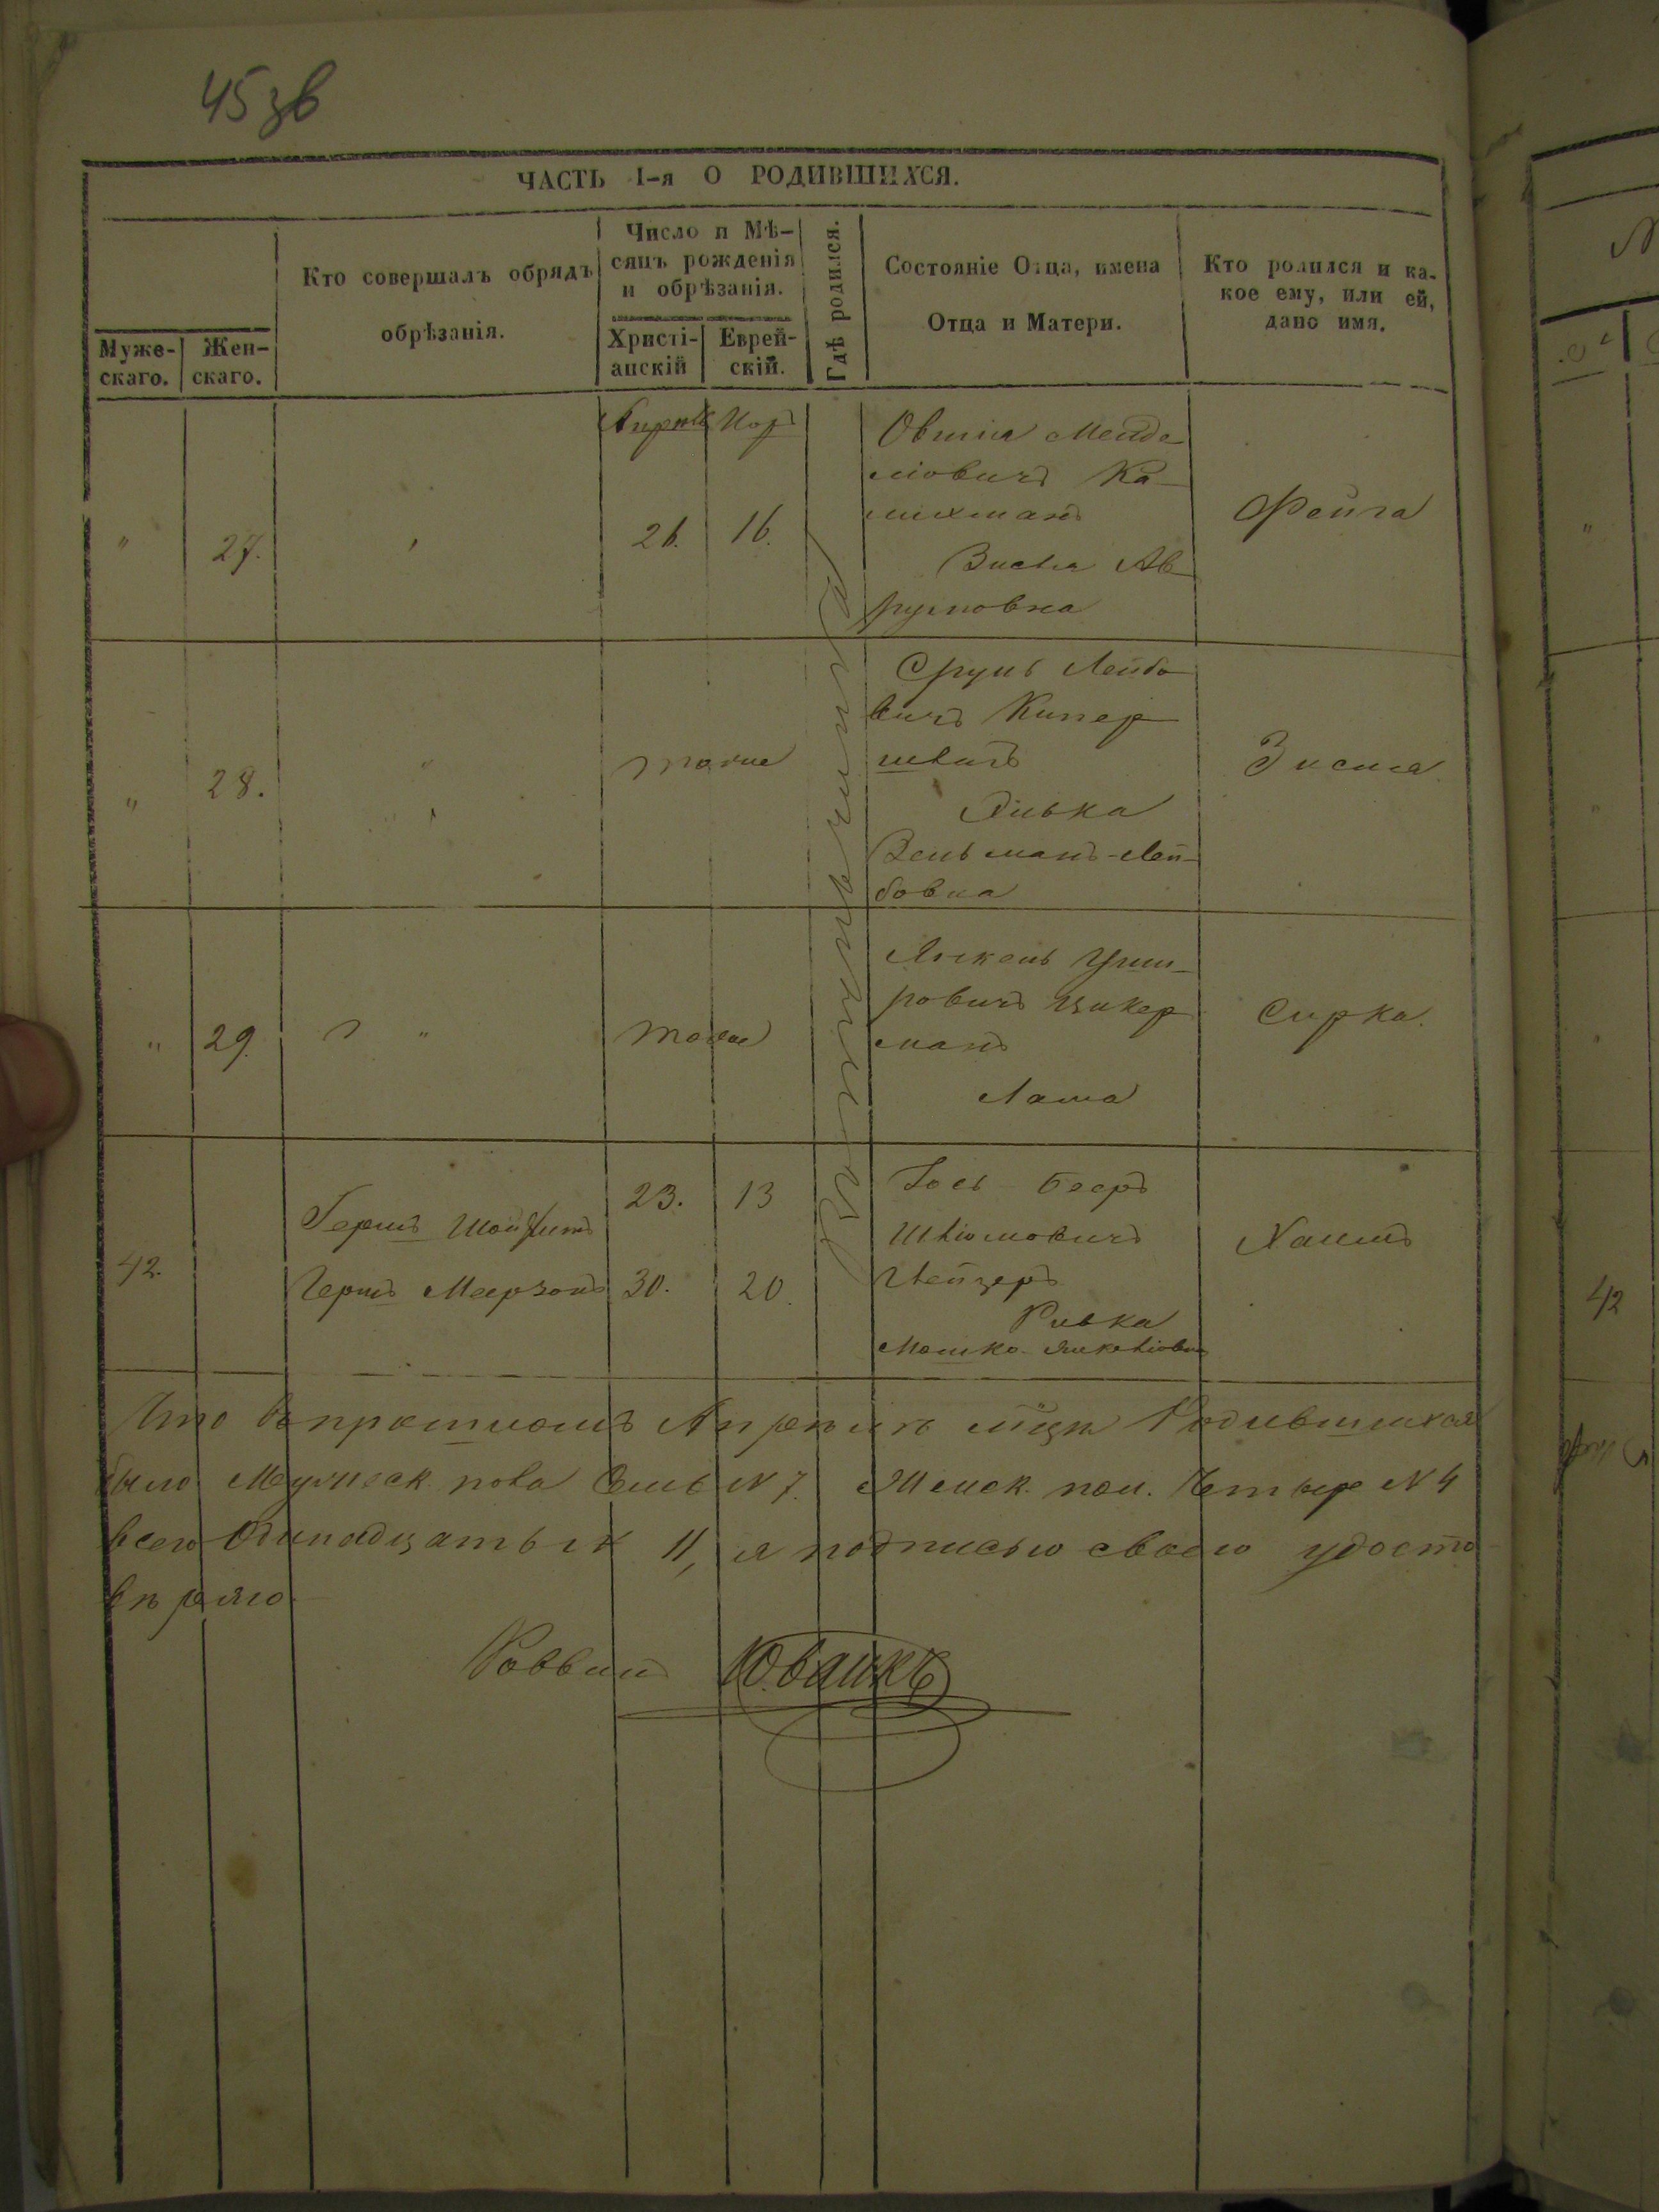 45 зв
ЧАСТЬ I-я О РОДИВШИХСЯ.
Муже-
скаго.
Жен-
скаго.
Кто совершалъ обрядъ
обрѣзанія.
Число и Мѣ-
сяцъ рожденія
и обрѣзанія.
Христі-
анскій
Еврей-
скій.
Гдѣ родился.
Состояніе Отца, имена
Отца и Матери.
Кто родился и ка-
кое ему, или ей,
дано имя.
"
27.
26.
16.
Овшія Менде
ліовичъ Ка-
Ав
румовна
Фейга
"
28.
"
тогоже
Сруль Лейбо
вичъ Кипер
Ривка
Вельманъ-Лей-
бовна
Зисля
"
29.
"
тогоже
Янкель
ровичъ Цикер
манъ
Сирка.
42.
Гершъ
Гершъ Меерзонъ
23.
13
30.
20.
Іось Бееръ
Швейцеръ
Ривка
Мошко
Хаимъ
Что въ прошломъ Апрѣлѣ мцѣ Родившихся
было Мужеск. пола Семь N 7. Женск. пол. Четыре N 4
всего Одинадцать N 11, я подписью своею удосто
вѣряю
Раввинъ